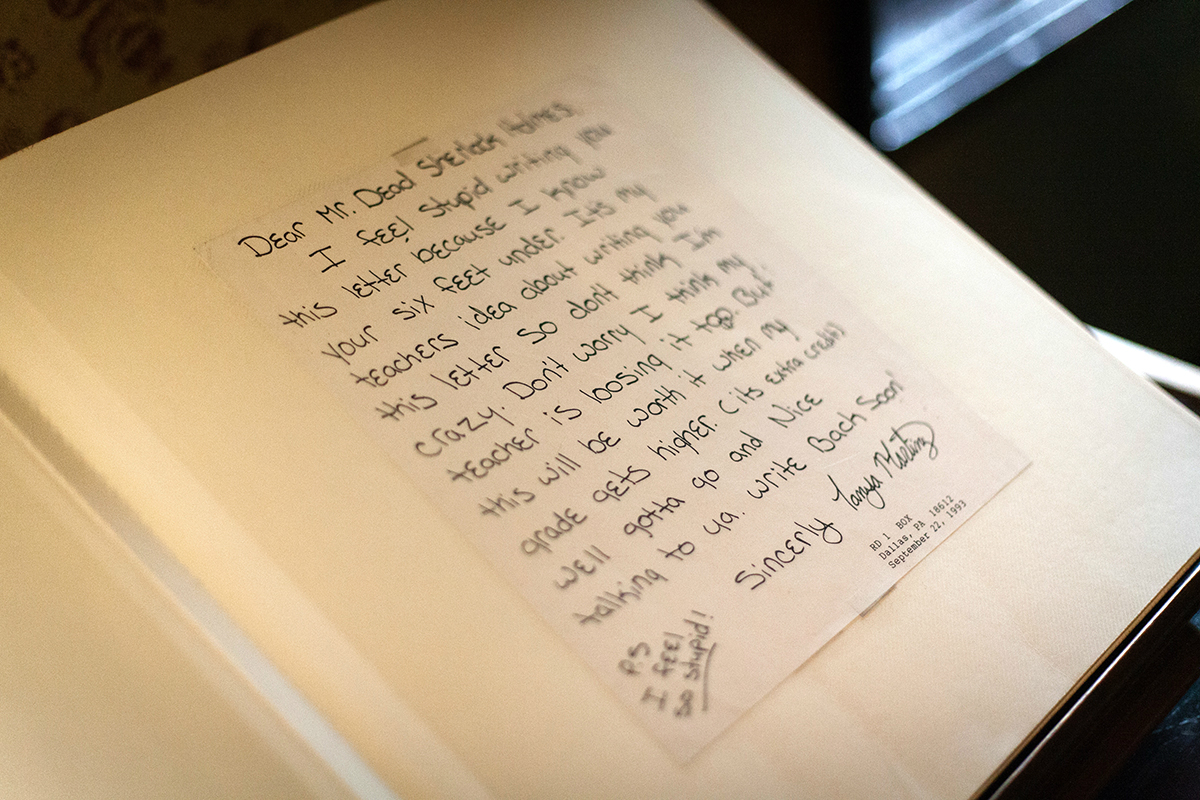 Dear Mr. Dead Sherlock Holmes,
I feel stupid writing you
this letter because I know
your six feet under. Its my
teachers idea about writing you
this letter so dont think Im
crazy. Don't worry I think my
teacher is loosing it too. But
this will be worth it when my
grade gets higher. (its extra credit)
well gotta go and Nice
talking to ya. write Back Soon!
Sincerly Tanya
RD 1 BOX
Dallas, PA 18612
September 22, 1993
P.S
I feel
so stupid!